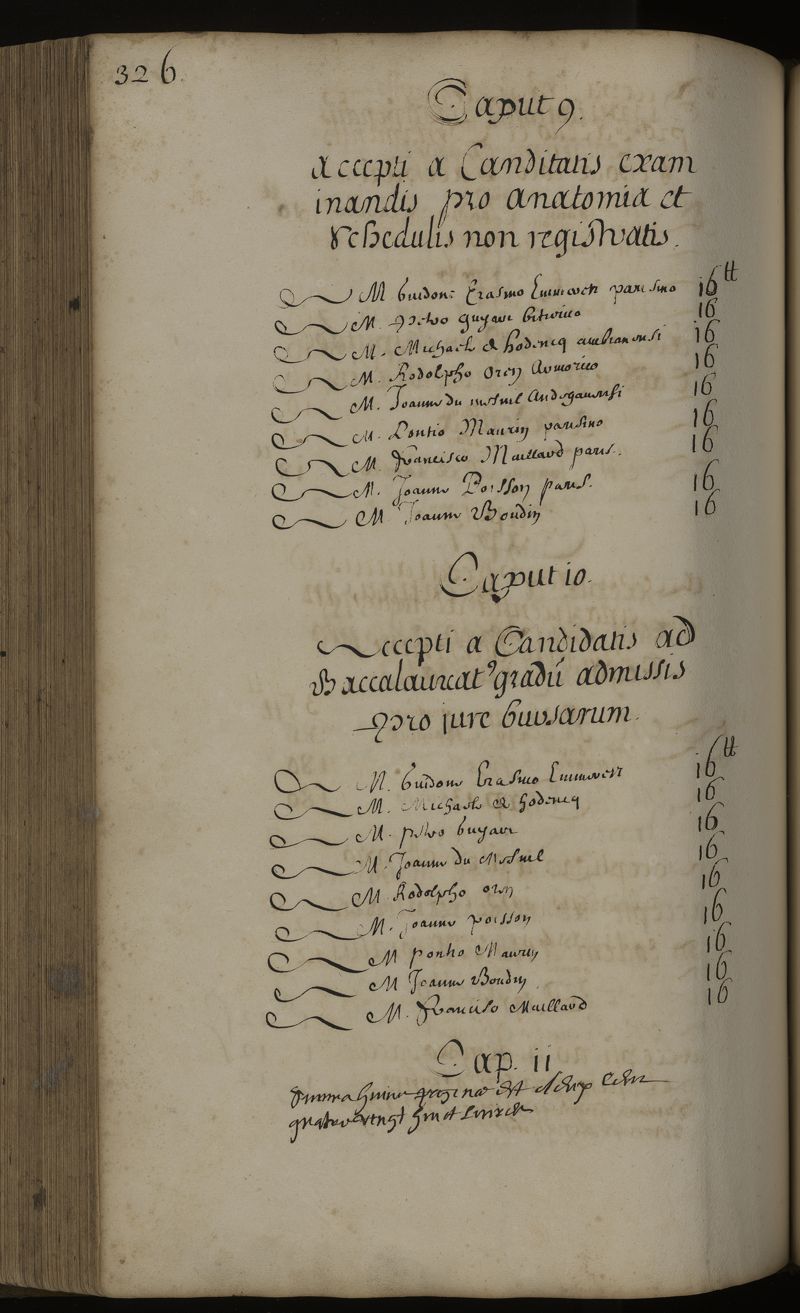 326.
Caput 9.
Accepti a Canditatis exam
inandis pro anatomia et
schedulis non registratis.
M Guidone Erasmo Emmerez parisino 16 ₶
M. Petro Guyart biturico 16
M. Michaele de hodencq ambianensi 16
M. Rodolpho 16
M. Joanne du mesnil Andegavensi 16
M. Pontio Maurin parisino 16
M. Francisco Maillard paris. 16
M. Joanne Poisson paris. 16
M Joanne Boudin 16
Caput 10.
Accepti a Candidatis ad
Baccalaureat9 gradu admissis
pro jure bursarum.
M. Guidone Erasmo Emmerez 16 ₶
M. Michaele de hodencq 16
M. petro Guyart 16
M. Joanne du Mesnil 16
M Rodolpho 16
M. Joanne poisson 16
M pontio Maurin 16
M Joanne Boudin 16
M. Francisco Maillard 16
Cap. 11
Summa hujus paginae est